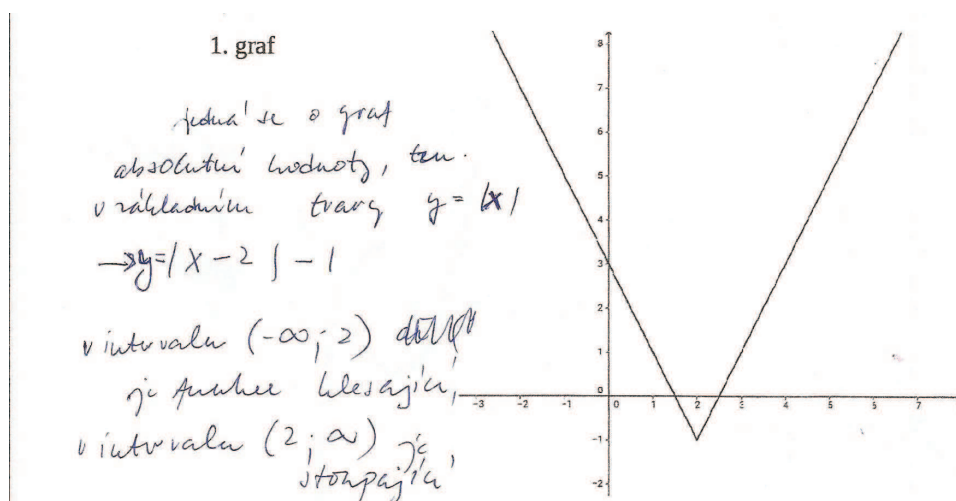 1. graf
jedná se o graf
absolutní hodnoty, ten
v základním tvary y = |x|
→ y = | x - 2 | - 1
v intervalu (-∞; 2)
je funkce klesající,
v intervalu (2; ∞) je
stoupající
8
7
6
5
4
3
2
1
0
-3 -2 -1 0 1 2 3 4 5 6 7
-1
-2